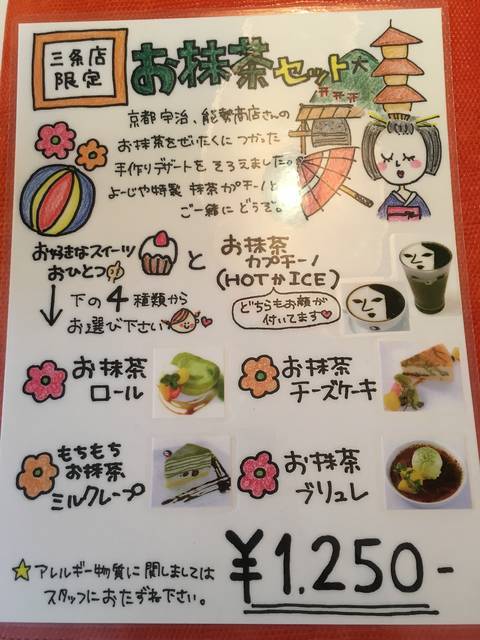 三条店
限定
お抹茶セット
京都宇治、能勢商店さんの
お抹茶をぜいたくにつかった
手作りデザートをそろえました。
よーじや特製 抹茶カプチーノと
ご一緒にどうぞ。
お好きなスイーツ
おひとつ
と
お抹茶
カプチーノ
(HOTかICE)
どちらもお顔が
付いてます
↓下の4種類から
お選び下さい
お抹茶
ロール
お抹茶
チーズケーキ
もちもち
お抹茶
ミルクレープ
お抹茶
ブリュレ
¥1.250-
☆アレルギー物質に関しましては
スタッフにおたずね下さい。